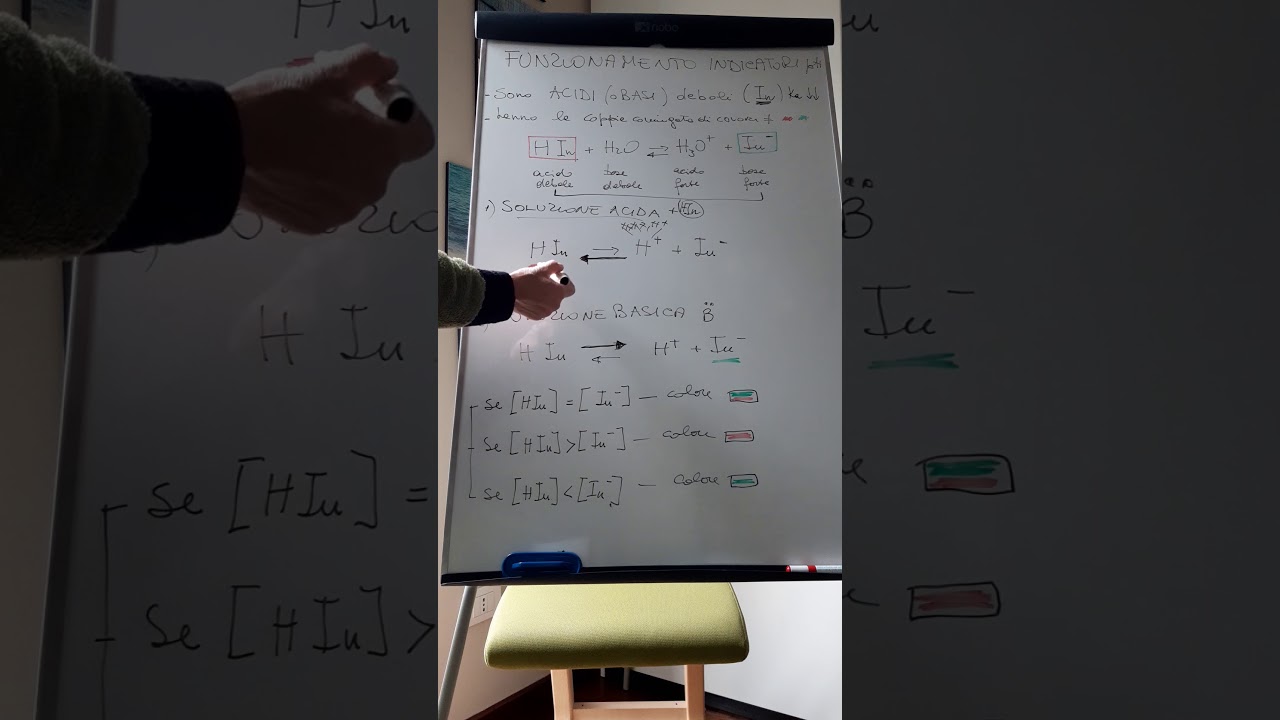 nobo
FUNZIONAMENTO INDICATORI pH
- Sono ACIDI (o BASI) deboli (In) Ka ↓↓
- hanno le coppie coniugate di colore ≠
HIn + H2O ⇌ H3O+ + In-
acido debole base debole acido forte base forte
1) SOLUZIONE ACIDA + HIn
H+ H+ H+ H+
HIn ⇌ H+ + In-
SOLUZIONE BASICA B̈
HIn ⇌ H+ + In-
se [HIn] = [In-] — colore
se [HIn] > [In-] — colore
se [HIn] < [In-] — colore